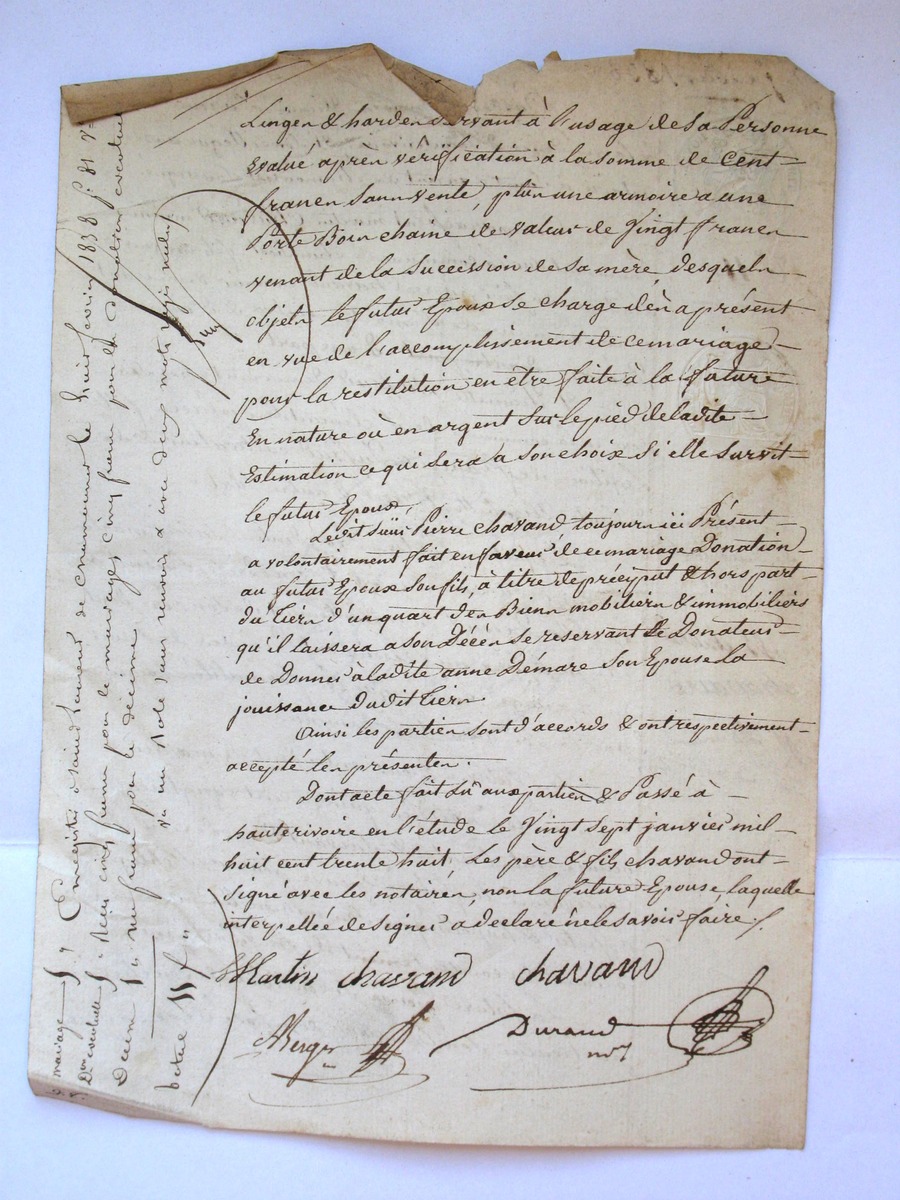 Linges & hardes servant à l'usage de sa Personne
évalué après vérification à la somme de Cent
francs sans vente, plus une armoire a une
Porte Bois chaine de valeur de Vingt francs
venant de la Succession de sa mère, desquels
objets le futur Epoux se charge dès à présent
en vue de l'accomplissement de ce mariage
pour la restitution en etre faite à la future
En nature où en argent sur le pied de ladite
Estimation ce qui sera a son choix Si elle survit
le futur Epoux,
Ledit Sieur Pierre Chavand toujours ici Présent
a volontairement fait en faveur de ce mariage Donation
au futur Epoux son fils, à titre de préciput & hors part
du tiers d'un quart des Biens mobiliers & immobiliers
qu'il laissera a son Décès se reservant le Donateur
de Donner à ladite anne Démare son Epouse la
jouissance dudit tiers
Ainsi les parties sont d'accords & ont respectivement
accepté les présentes.
Dont acte fait lu aux parties & Passé à
hauterivoire en l'étude le Vingt sept janvier mil
huit cent trente huit. Les père & fils chavand ont
signé avec les notaires, non la future Epouse, laquelle
interpellée de signer a declaré ne le savoir faire /.
Martin chavand chavand
Berger Durand
nre
Enregistré à saint Laurent de chamousset le huit fevrier 1838 f° 81 v°
Reçu cinq francs pour le mariage, cinq francs pour la donation eventuelle
un franc pour le décime
un Role sans renvois & avec deux mots rayés nuls
mariage 5 "
Don eventuelle 5 "
Decime 1 "
total 11 f "